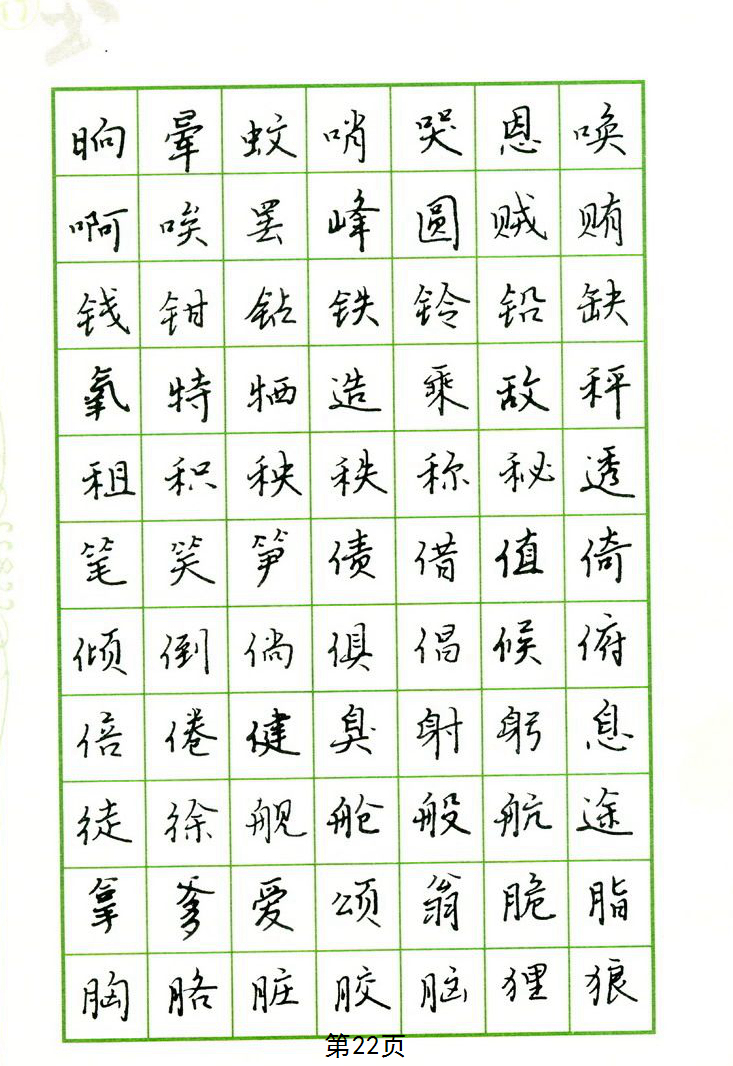 晌晕蚊哨哭恩唤
啊唉罢峰圆贼贿
钱钳钻铁铃铅缺
氧特牺造乘敌秤
租积秧秩称秘透
笔笑笋债借值倚
倾倒倘俱倡候俯
倍倦健臭射躬息
徒徐舰舱般航途
拿爹爱颂翁脆脂
胸胳脏胶脑狸狼
第22页